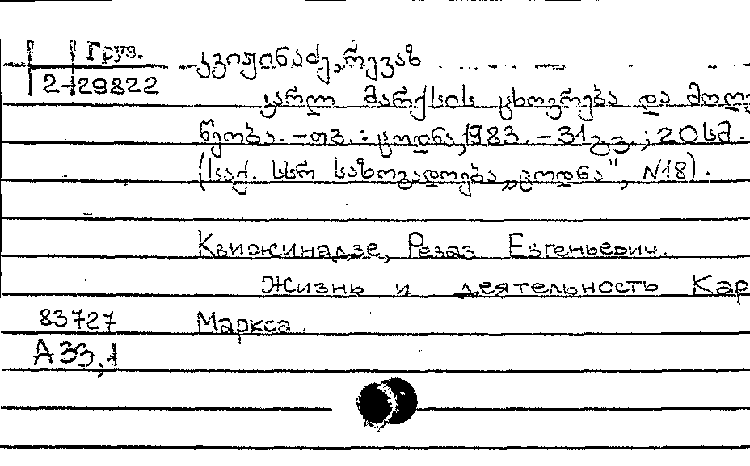 Груз.
2-29822
კვიჟინაძე, რევაზ
კარლ მარქსის ცხოვრება და მოღ
წეობა. - თბ. : ცოდნა, 1983. - 31 გვ. ; 20 სმ.
(საქ. სსრ საზოგადოება „ცოდნა", N18).
Квижинадзе, Реваз Евгеньевич.
Жизнь и деятельность Кар
83727 Маркса.
А33,1